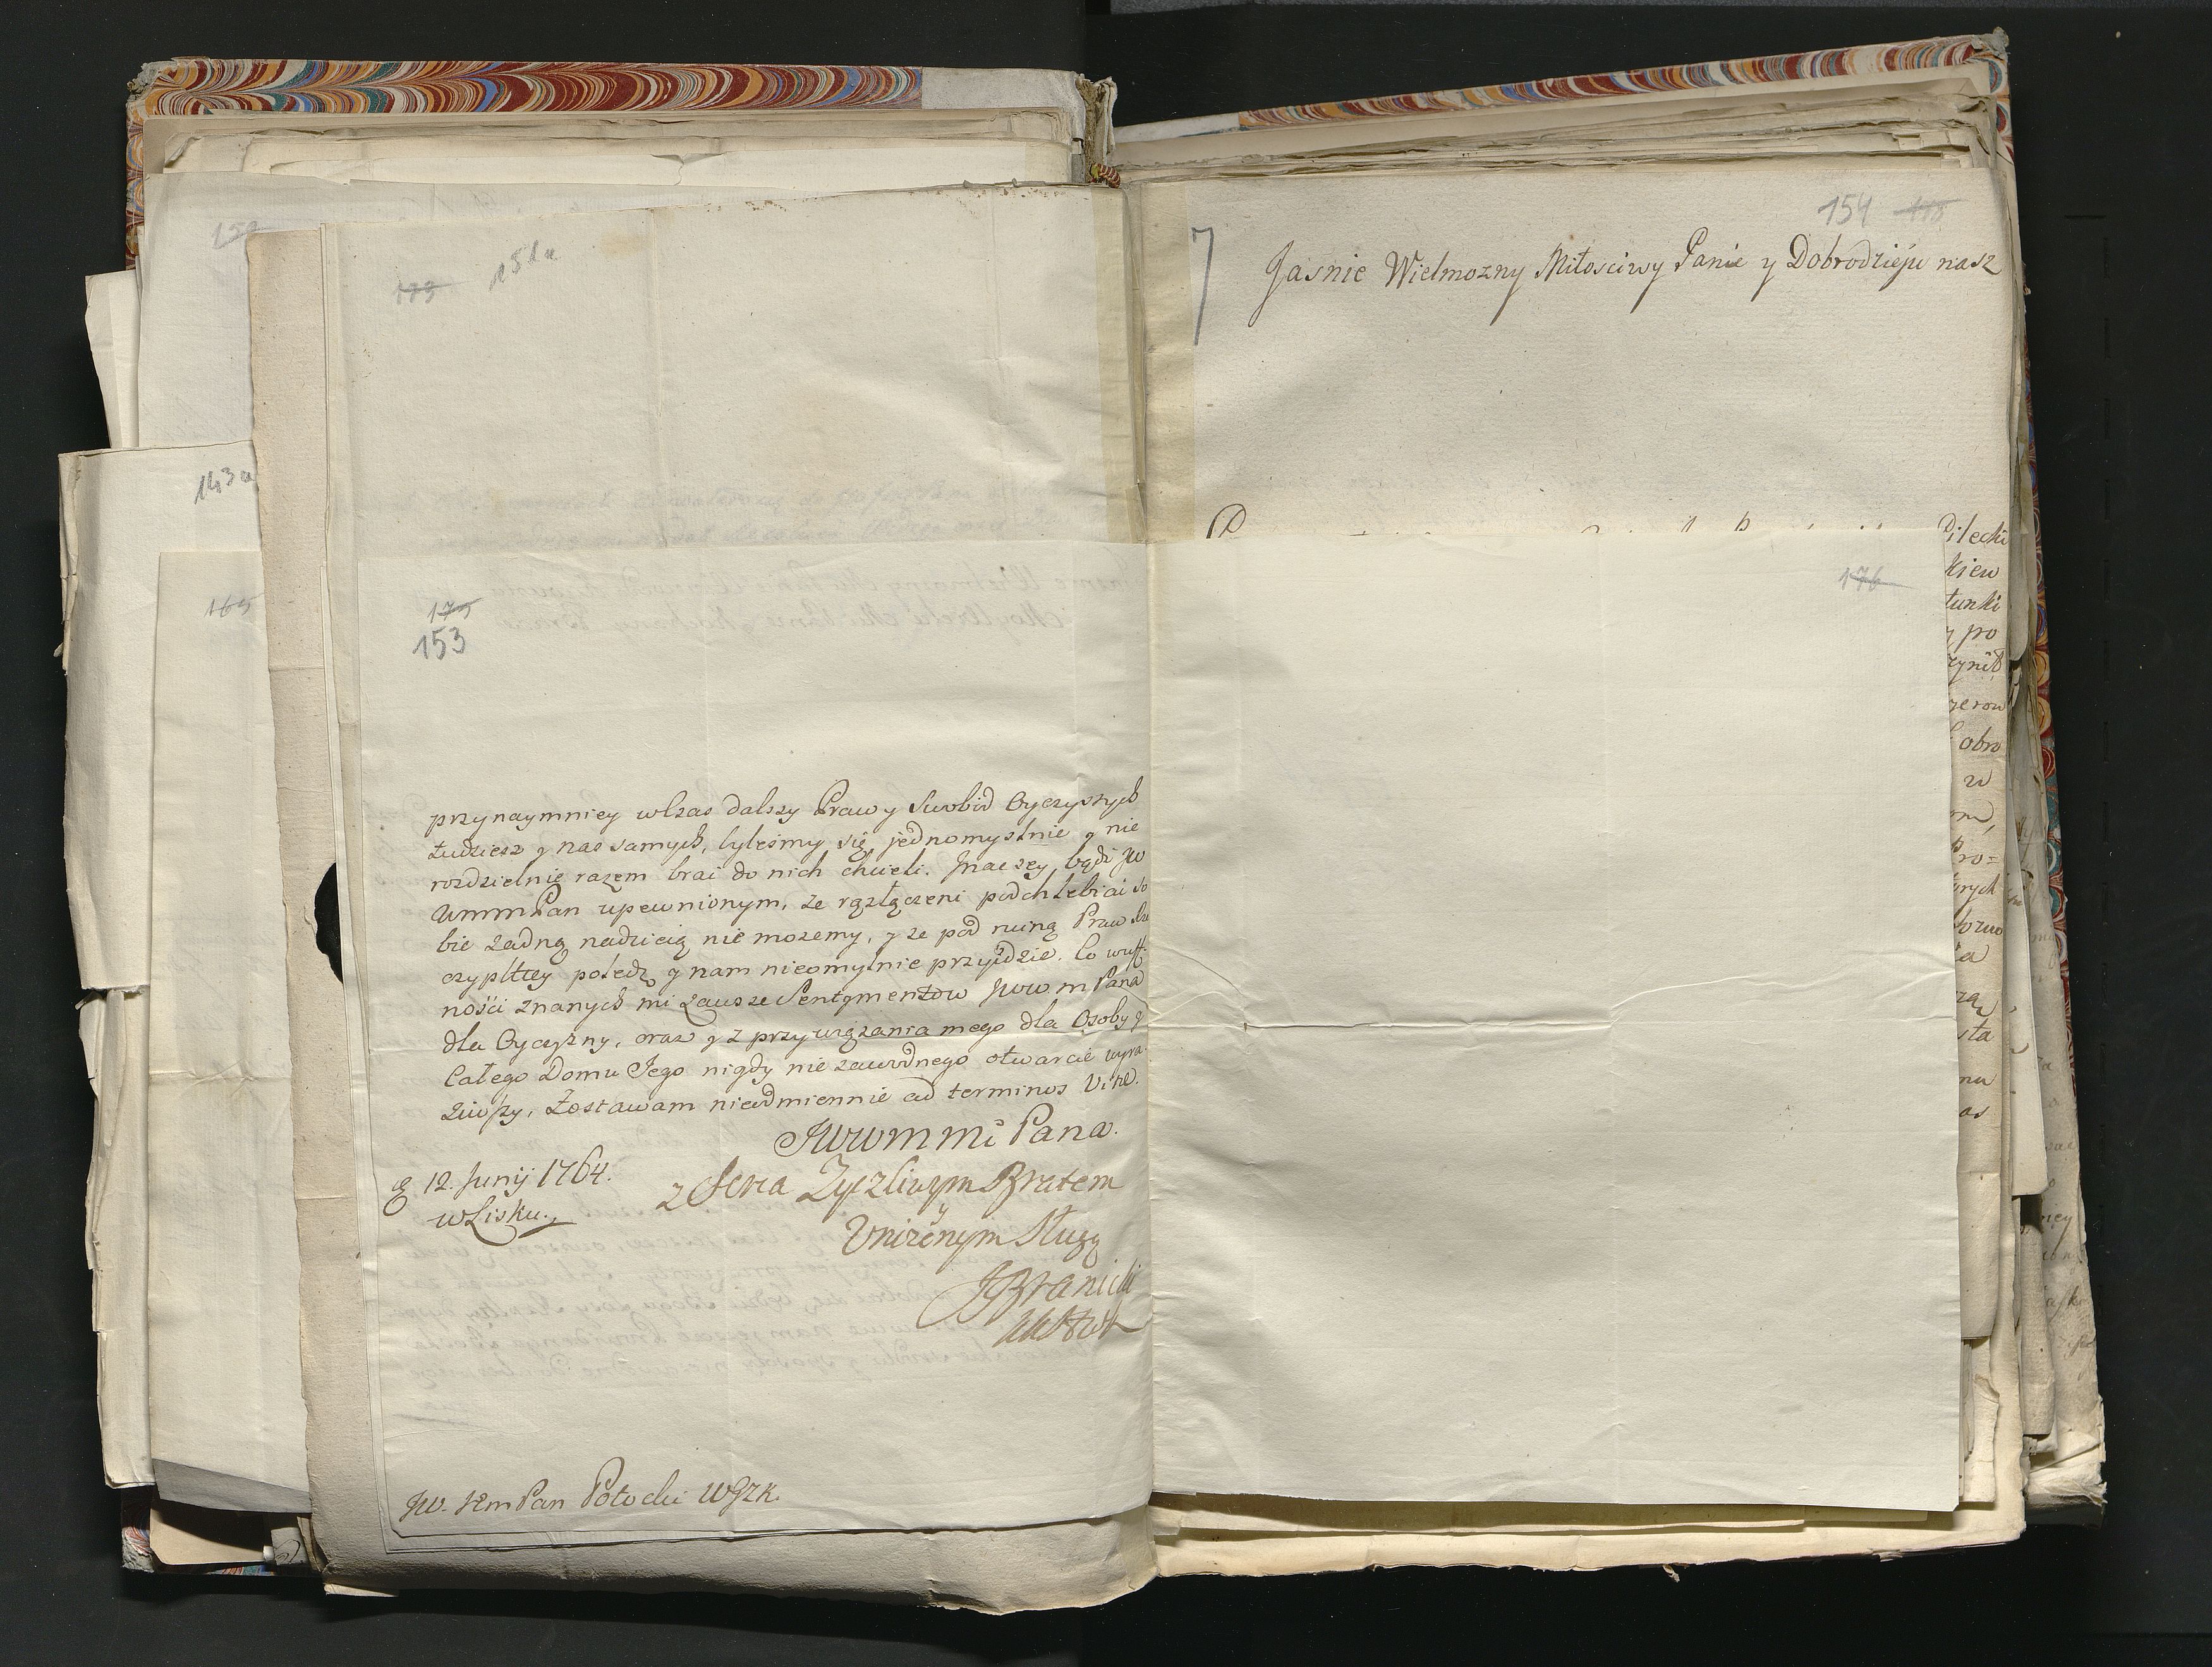 150
179 151a
143a
165
175
153
przynaymniey wczas dalszy Praw y Swobód Oyczystych
tudziesz y nas samych, byleśmy się jednomyslnie y nie
rozdzielnie razem brać do nich chcieli. Jnaczey bądź JW
WmmPan upewnionym, że rozłączeni podchlebiać so
bie żadną nadzieią nie możemy, y że pod ruiną Praw Rze
czypltey poledz y nam nieomylnie przyidzie. Co w uff
ności znanych mi zawsze Sentymentow JWWmPana
dla Oyczyzny, oraz y z przywiązania mego dla Osoby y
Całego Domu Jego nigdy nie zawodnego otwarcie wyra
ziwszy, Zostawam nieodmiennie ad terminos Vitæ.
JWWmmi Pana.
z Serca Zyczliwym Bratem
Uniżonym Sługą
JBranicki
12. Junij 1764.
w Lisku.
JW. JEmPan Potocki WGZK.
154 178
7
Jasnie Wielmozny Miłosciwy Panie y Dobrodzieju nasz
Pilecki
176
kiew
tunki
y po
zynił
zerow
obro
w
om,
ro=
ych
a
rzą
sta
mu
as